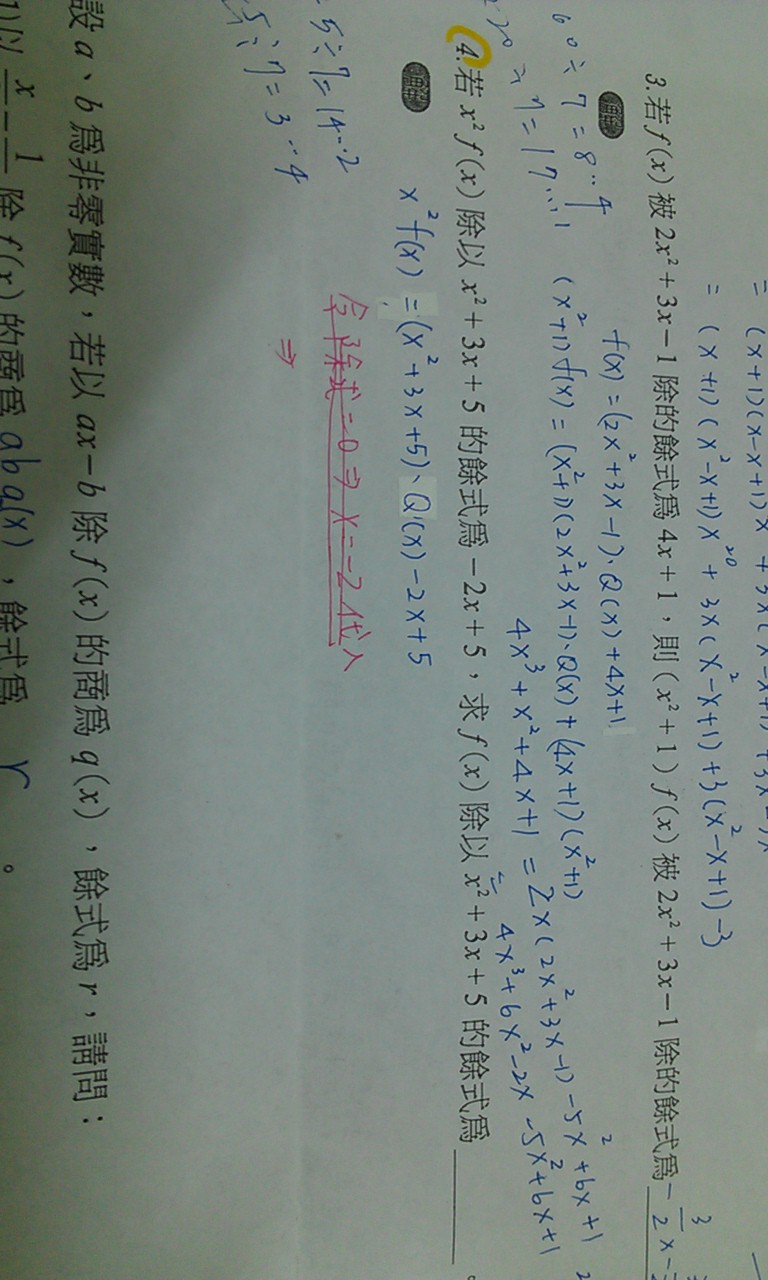 = (x+1)(x-x+1)x
= (x+1)(x²-x+1)x²⁰ + 3x(x²-x+1)+3(x²-x+1)-3
3.若f(x)被2x²+3x-1除的餘式為4x+1,則(x²+1)f(x)被2x²+3x-1除的餘式為
f(x) = (2x²+3x-1)、Q(x)+4x+1
60÷7=8…4
(x²+1)f(x) = (x²+1)(2x²+3x-1)、Q(x)+(4x+1)(x²+1)
4x³+x²+4x+1 = 2x(2x²+3x-1) -5x²+6x+1
÷7=17…1
= 4x³+6x²-2x -5x²+6x+1
4.若x²f(x)除以x²+3x+5的餘式為-2x+5,求f(x)除以x²+3x+5的餘式為
x²f(x) = (x²+3x+5)、Q(x)-2x+5
5÷7=14…2
令除式=0⇒x=-2代入
5÷7=3…4
⇒
設a、b為非零實數,若以ax-b除f(x)的商為q(x),餘式為r,請問:
除f(x)的商為abq(x),餘式為r。